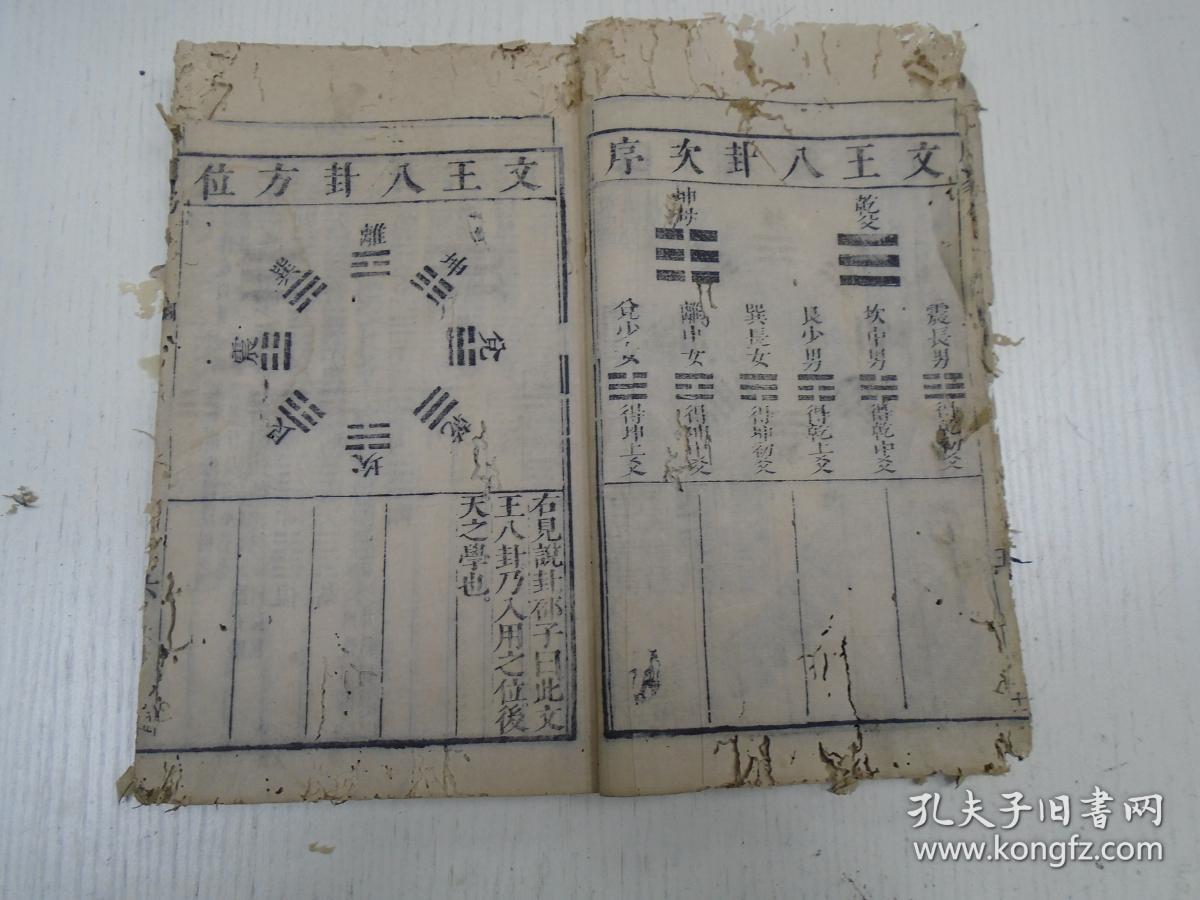 文王八卦次序
乾父
坤母
震長男
得乾初爻
坎中男
得乾中爻
艮少男
得乾上爻
巽長女
得坤初爻
離中女
得坤中爻
兌少女
得坤上爻
文王八卦方位
離
坤
兌
乾
坎
艮
震
巽
右見說卦邵子曰此文
王八卦乃入用之位後
天之學也。
孔夫子旧书网
www.kongfz.com